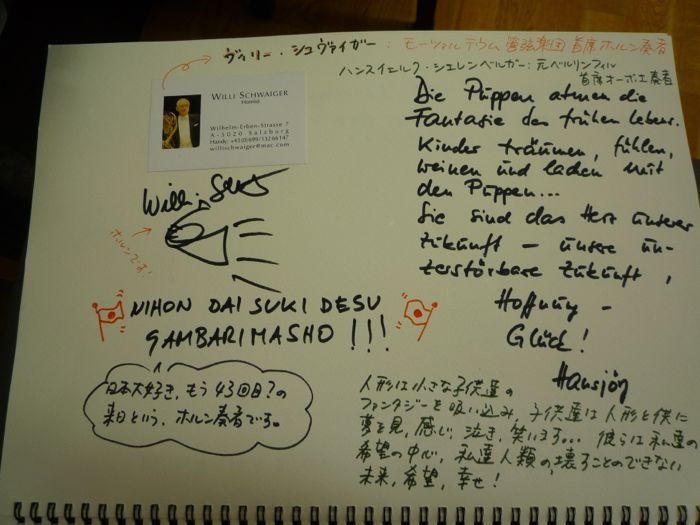 ヴィリー・シュヴァイガー：モーツァルテウム管弦楽団 首席ホルン奏者
ハンスイェルク・シェレンベルガー：元ベルリンフィル
首席オーボエ奏者
WILLI SCHWAIGER
Hornist
Wilhelm-Erben-Strasse 7
A-5020 Salzburg
Handy: +43(0)699/13266147
willischwaiger@mac.com
Willi
ホルンです！
NIHON DAI SUKI DESU
GAMBARIMASHO !!!
日本大好き，もう43回目？の
来日という，ホルン奏者です。
Die Puppen atmen die
Fantasie des frühen Lebens.
Kinder träumen, fühlen,
weinen und lachen mit
den Puppen...
Sie sind das Herz unserer
Zukunft - unsere un-
zerstörbare Zukunft,
Hoffnung -
Glück!
Hansjörg
人形は小さな子供達の
ファンタジーを吸い込み，子供達は人形と供に
夢を見，感じ，泣き，笑います... 彼らは私達の
希望の中心，私達人類の，壊ることのできない
未来，希望，幸せ！